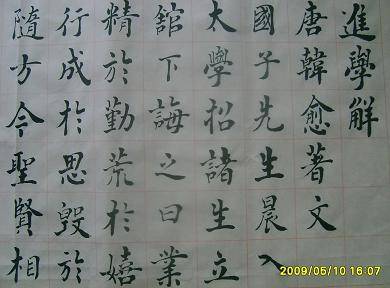 進學解
唐韓愈著文
國子先生晨入
太學招諸生立
館下誨之曰業
精於勤荒於嬉
行成於思毀於
隨方今聖賢相
2009/05/10 16:07